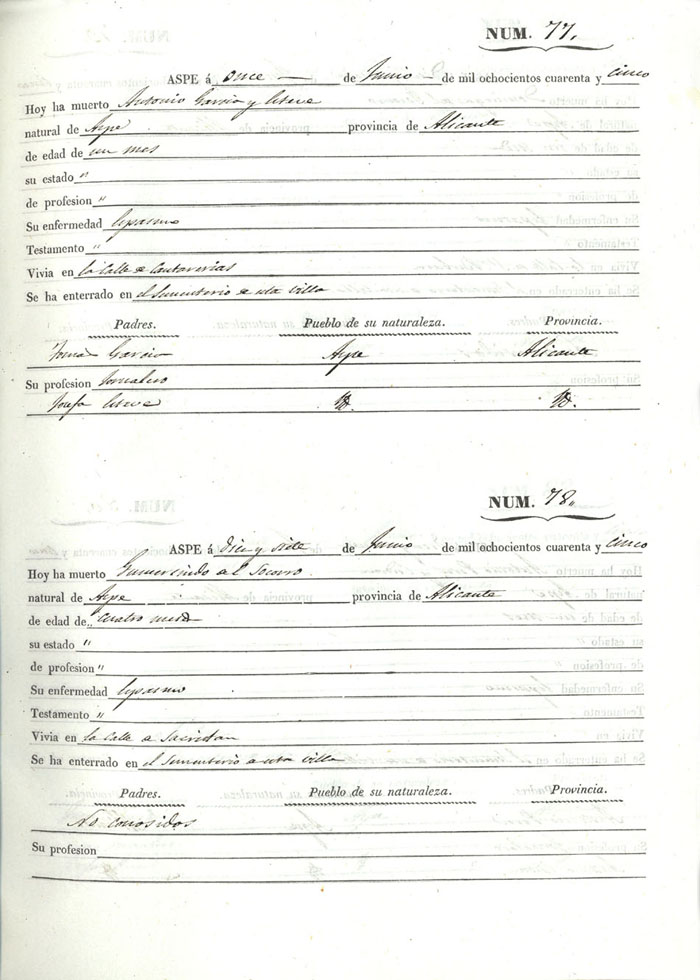 NUM. 77,
ASPE á once — de Junio — de mil ochocientos cuarenta y cinco
Hoy ha muerto Antonio Garcia y Esteve
natural de Aspe provincia de Alicante
de edad de un mes
su estado "
de profesion "
Su enfermedad Espasmo
Testamento "
Vivia en la Calle de Cantarerias
Se ha enterrado en el Sementerio de esta Villa
Padres. Pueblo de su naturaleza. Provincia.
Garcia Aspe Alicante
Su profesion Jornalero
Josefa Esteve Yd. Yd.
NUM. 78.
ASPE á Diez y siete de Junio de mil ochocientos cuarenta y cinco
Hoy ha muerto Gumersindo del Socorro
natural de Aspe provincia de Alicante
de edad de cuatro meses
su estado "
de profesion "
Su enfermedad Espasmo
Testamento "
Vivia en la Calle de Sacristan
Se ha enterrado en el Sementerio de esta Villa
Padres. Pueblo de su naturaleza. Provincia.
No conosidos
Su profesion